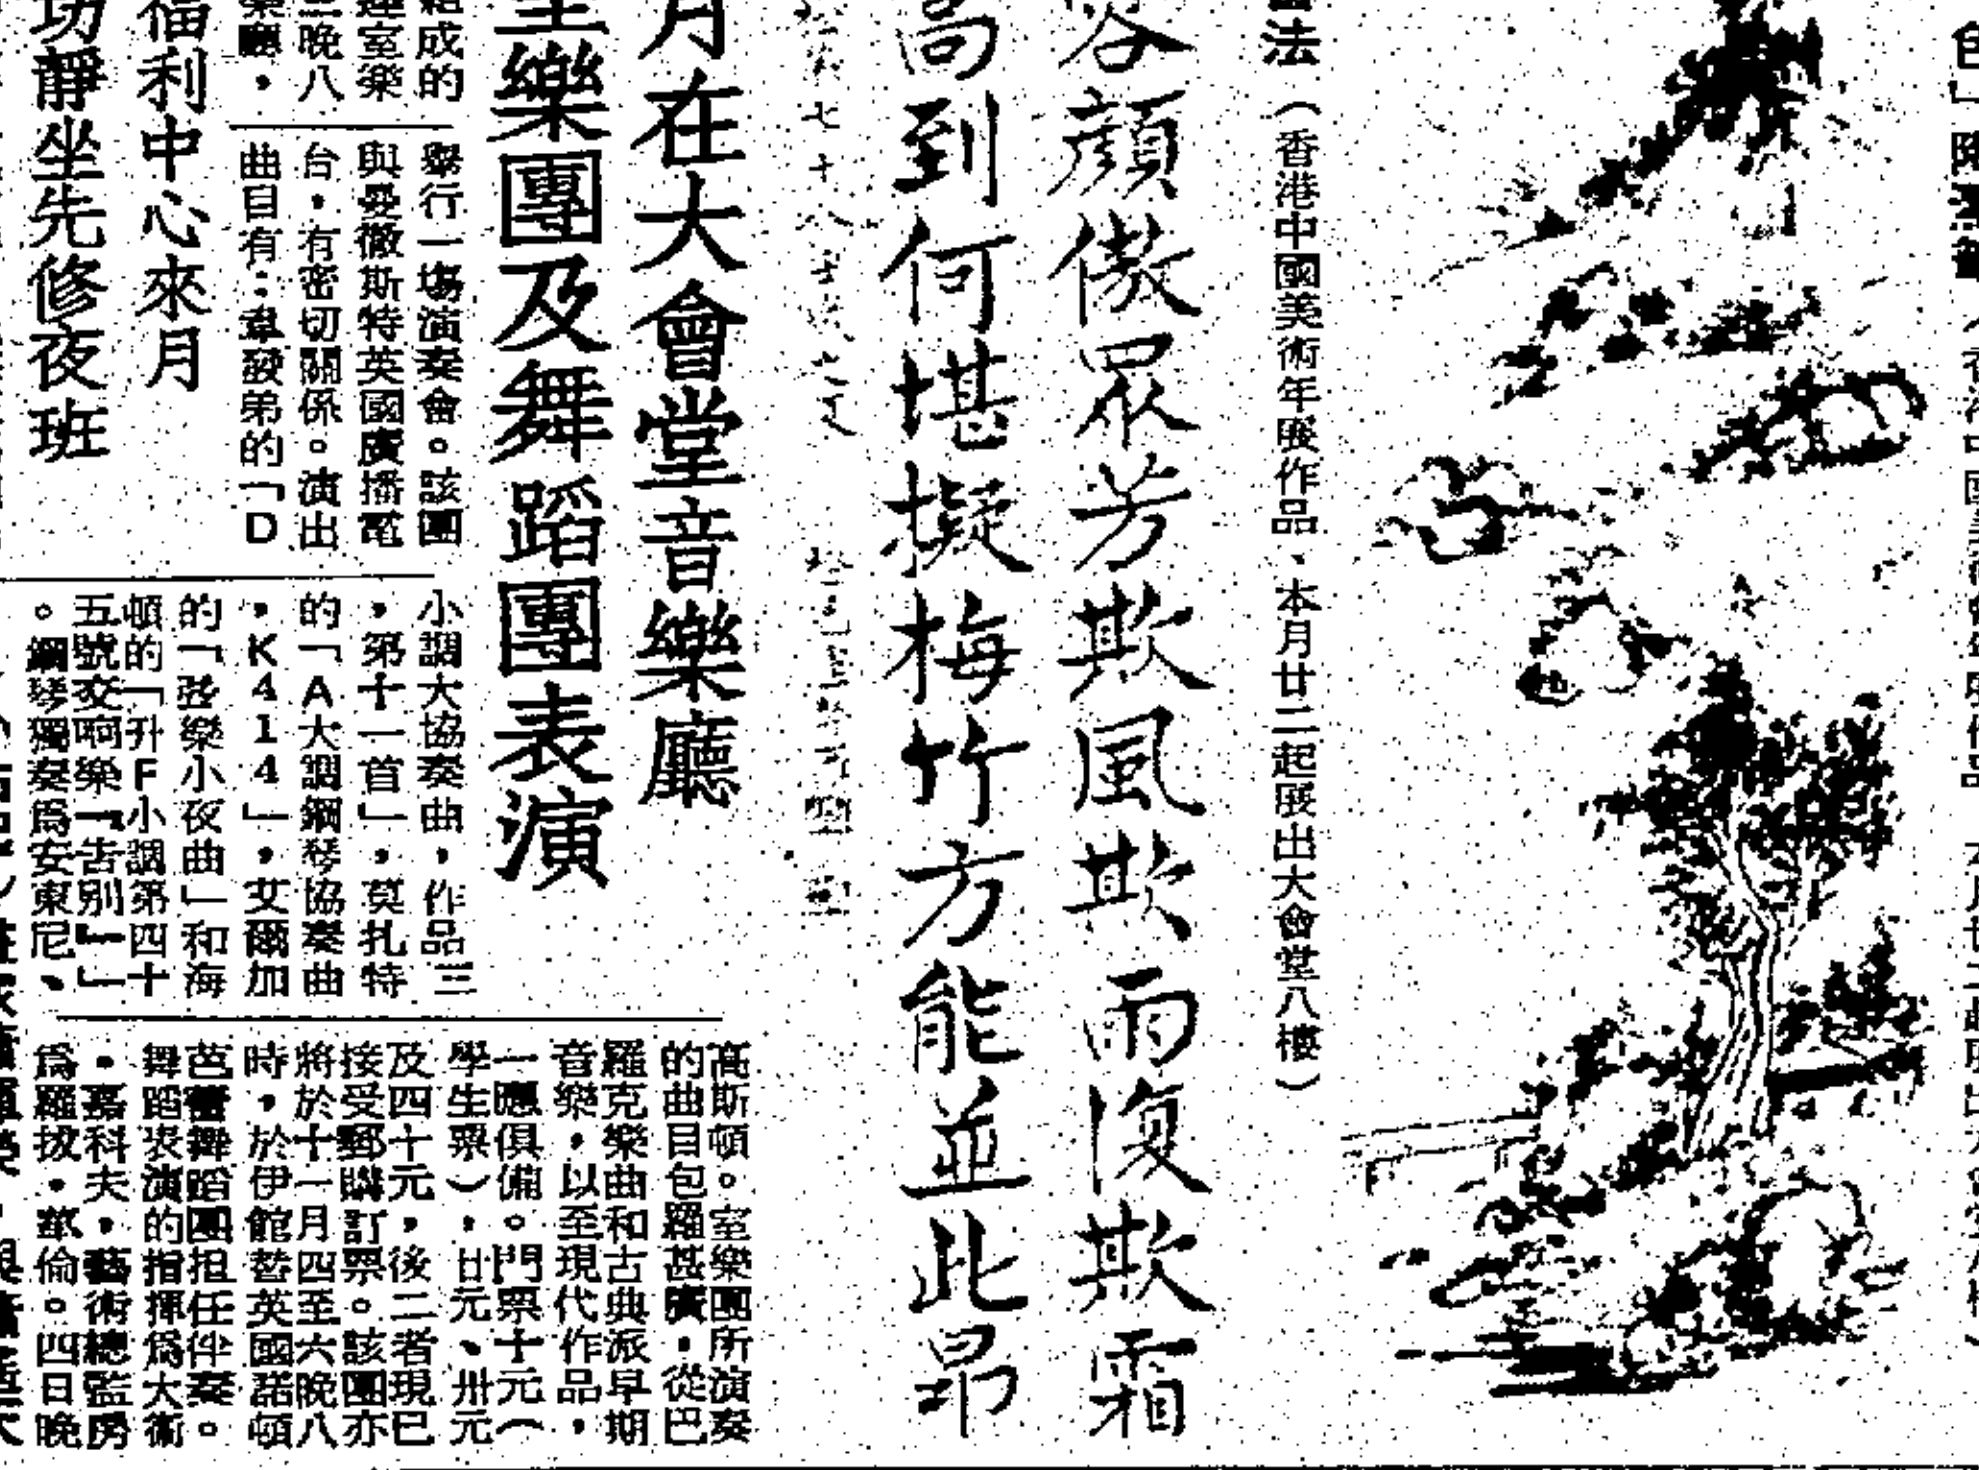 法（香港中國美術年展作品、本月廿二起展出大會堂八樓）
容顏傲眾芳欺風欺雨復欺霜
高到何堪擬梅竹方能並此昂
月在大會堂音樂廳
室樂團及舞蹈團表演
組成的
室樂
三晚八
樂廳，
舉行一場演奏會。該團
與曼徹斯特英國廣播電
台，有密切關係。演出
曲目有：韋發弟的「D
小調大協奏曲，作品三
，第十一首」，莫扎特
的「A大調鋼琴協奏曲
，K414」，艾爾加
的「弦樂小夜曲」和海
頓的「升F小調第四十
五號交响樂『告別』」
。鋼琴獨奏爲安東尼、
高斯頓。室樂團所演奏
的曲目包羅甚廣，從巴
羅克樂曲和古典派早期
音樂，以至現代作品，
一應俱備。門票十元（
學生票），廿元、卅元
及四十元，後二者現已
接受郵購訂票。該團亦
將於十一月四至六晚八
時，於伊館替英國諾頓
芭蕾舞蹈團担任伴奏。
舞蹈表演的指揮爲大衛
．嘉科夫，藝術總監房
爲羅拔．韋倫。四日晚
福利中心來月
功靜坐先修夜班